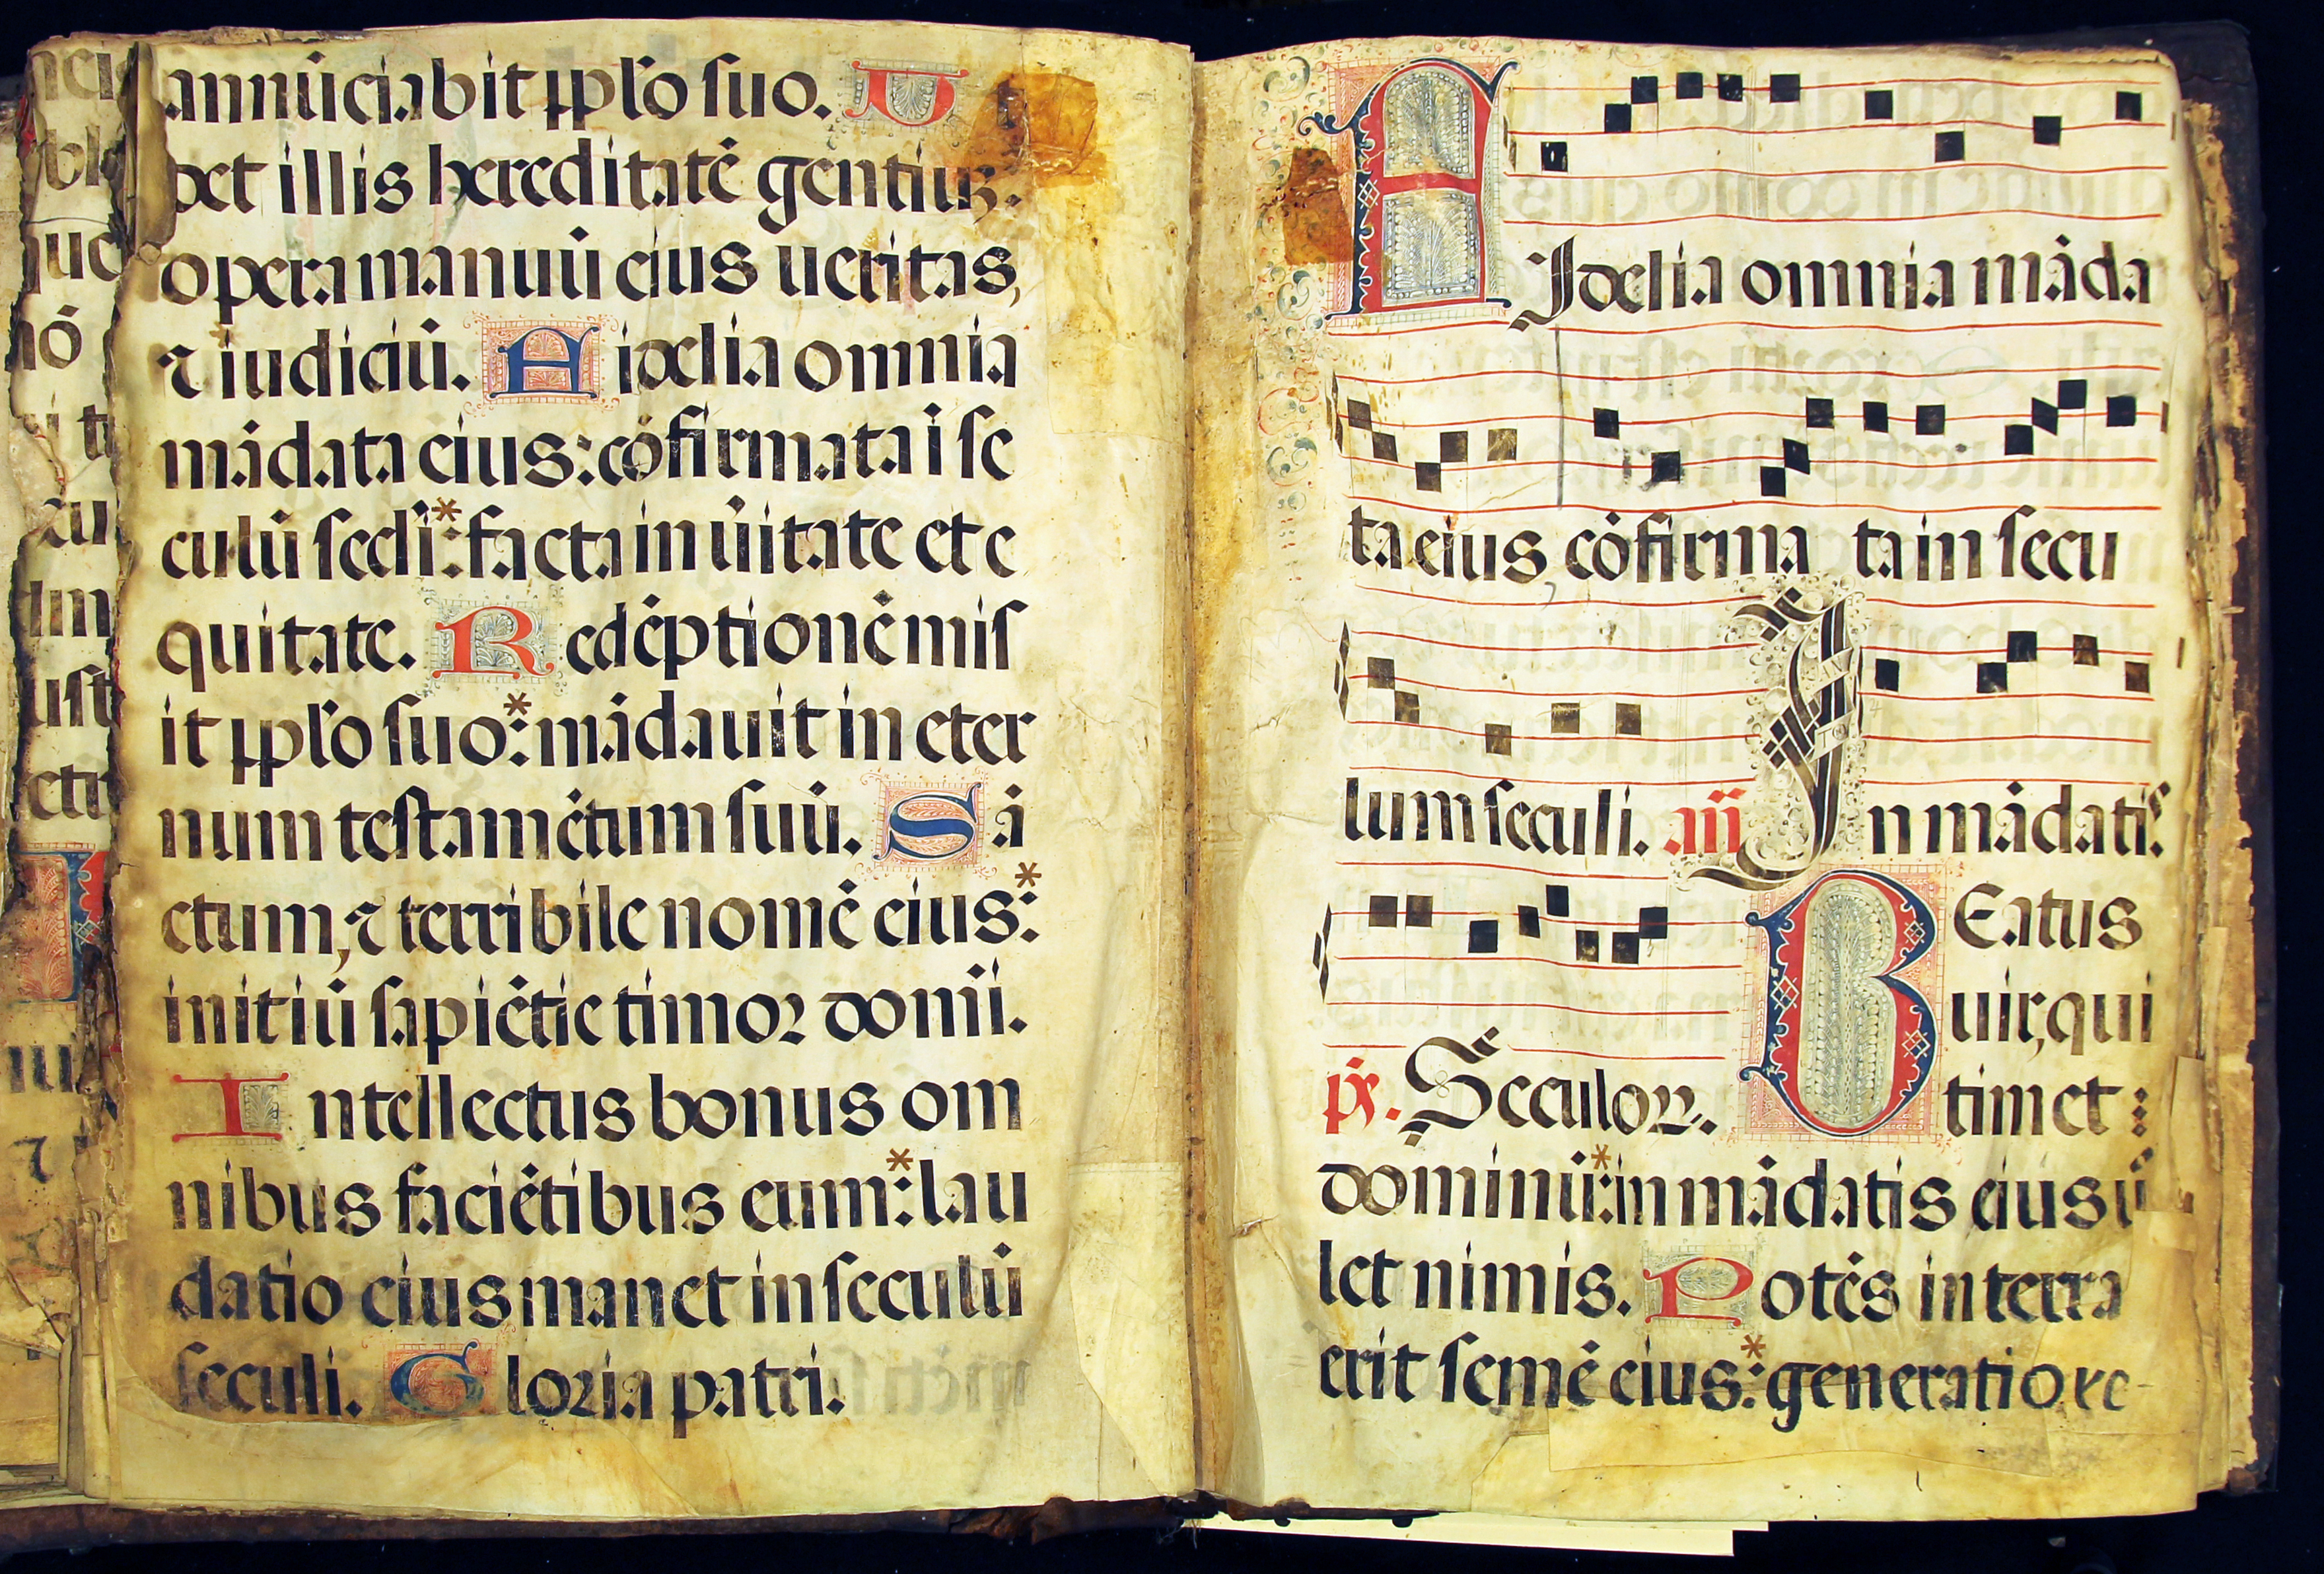 annūciabit pplo suo. U
det illis hereditatē gentiuꝫ.
opera manuū eius ueritas,
⁊ iudiciū. Fidelia omnia
mādata eius: cōfirmata ī se
culū sc̄li*: facta in ūitate et e
quitate. Redēptionē mis
it pplo suo*: mādauit in eter
num testamētum suū. Sā
ctum, ⁊ terribile nomē eius*:
initiū sapiētie timor dom̄i.
Intellectus bonus om
nibus faciētibus eum*: lau
datio eius manet in seculū
seculi. Gloria patri.
Fidelia omnia māda
ta eius cōfirma ta in secu
lum seculi. añ In mādatis
Beatus
uir, qui
p̄s. Seculoꝝ. timet:
dominū*: in mādatis eius ū
let nimis. Potēs in terra
erit semē eius*: generatio re-